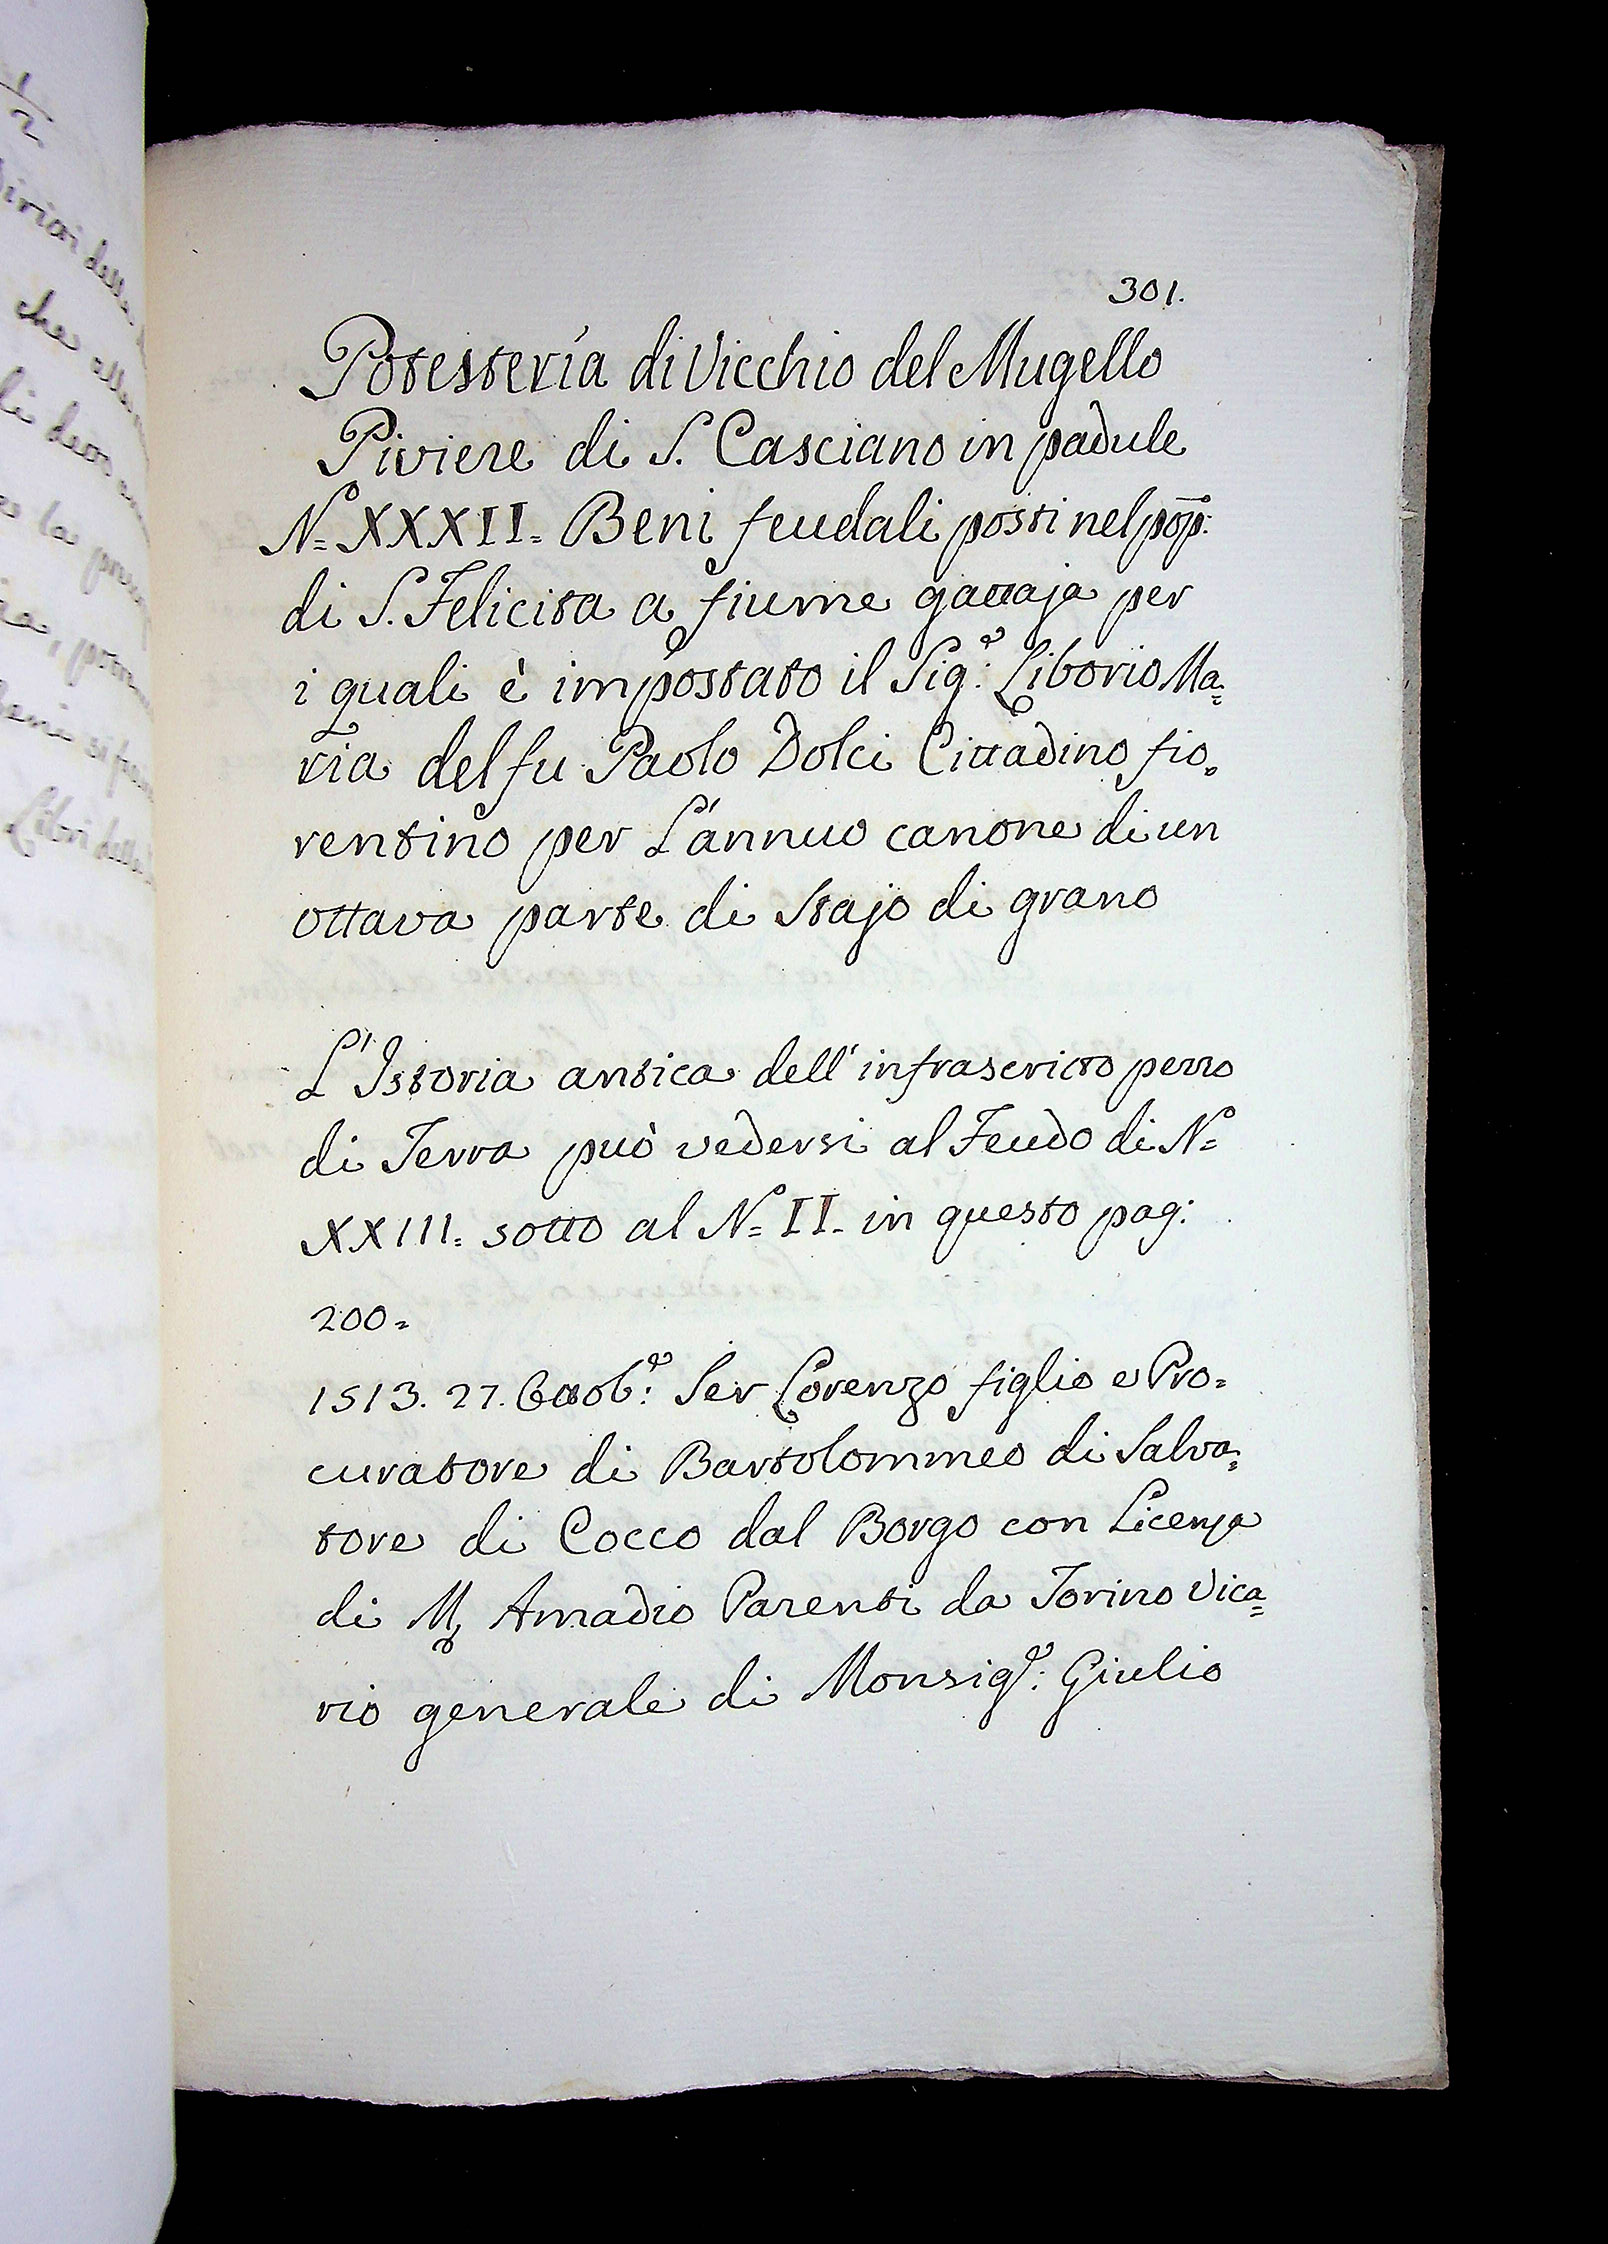 301.
Potesteria di Vicchio del Mugello
Piviere di S. Casciano in padule
N.= XXXII= Beni feudali posti nel pop:
di S. Felicita a fiume gattaja per
i quali è impostato il Sig.e: Liborio Ma=
ria del fu Paolo Dolci Cittadino fio=
rentino per L'annuo canone di un
ottava parte di Stajo di grano
L'Istoria antica dell'infrascritto pezzo
di Terra può vedersi al Feudo di N.=
XXIII= sotto al N.= II= in questo pag:
200=
1513. 27. Ottob.e: Ser Lorenzo figlio e Pro=
curatore di Bartolommeo di Salva=
tore di Cocco dal Borgo con Licenza
di M. Amadio Parenti da Torino Vica=
rio generale di Monsig.e: Giulio
che alla